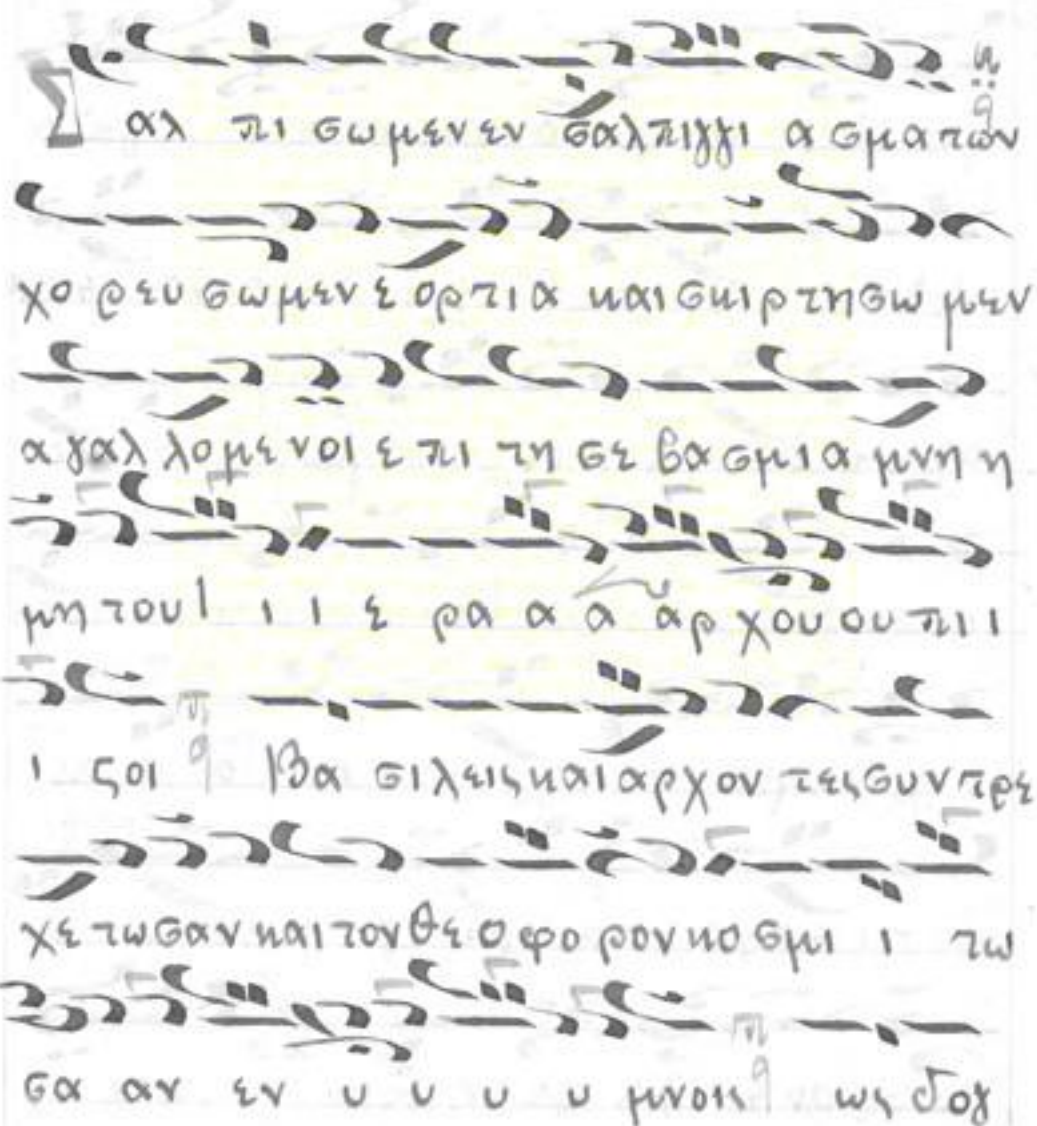 Σαλ πι σωμεν εν σαλπιγγι α σμα των
χο ρευ σωμεν ε ορτι α και σκιρ τη σω μεν
α γαλ λο με νοι ε πι τη σε βα σμι α μνη η
μη του ι ι ι ε ρα α α αρ χου ου πι ι
ι ζοι Βα σι λεις και αρ χον τες συν τρε
χε τω σαν και τον θε ο φο ρον κο σμι ι τω
σα αν εν υ υ υ υ μνοις ως δογ